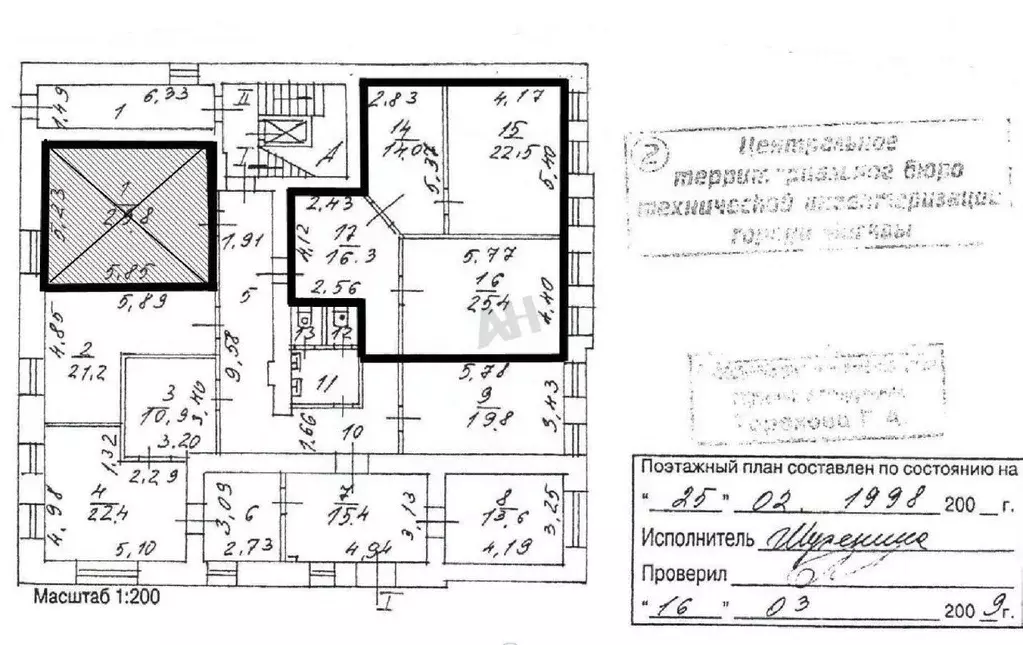 1,49
6,33
1
II
I
А
2,83
14
14,0
5,37
4,17
15
22,5
5,40
5,23
1
29,8
5,85
1,91
5
9,58
2,43
17
16,3
4,12
2,56
5,77
16
25,4
4,40
АН
5,89
4,85
2
21,2
3
10,9
3,40
3,20
13
12
11
1,66
10
5,78
9
19,8
3,43
1,32
2,29
4
22,4
4,98
5,10
3,09
6
2,73
7
15,4
3,13
4,94
8
13,6
3,25
4,19
I
Масштаб 1:200
2
Центральное
территориальное бюро
технической инвентаризации
города Москвы
Горохова Г А.
Поэтажный план составлен по состоянию на
"25" 02. 1998 200 г.
Исполнитель
Проверил
"16" 03 2009г.